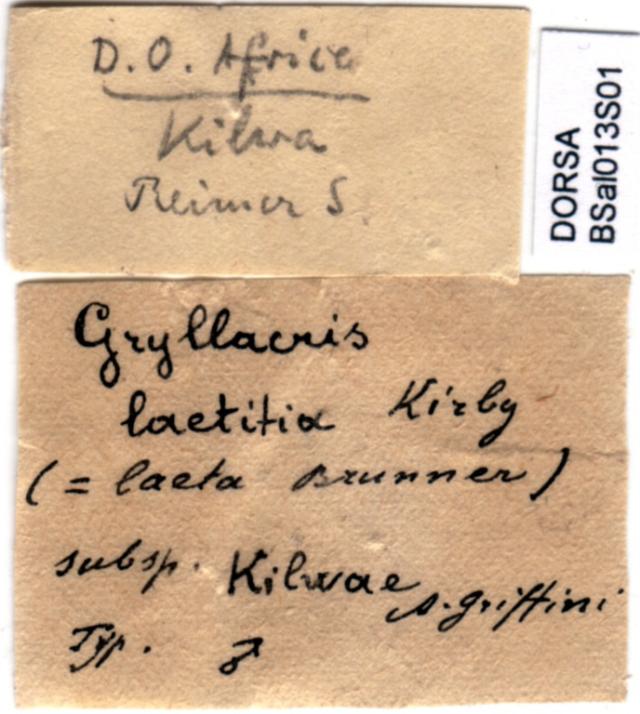 D.O. Africa
Kilwa
Reimer S.
DORSA
BSal013S01
Gryllacris
laetitia Kirby
(= laeta Brunner)
subsp. Kilwae A. Griffini
Typ. ♂